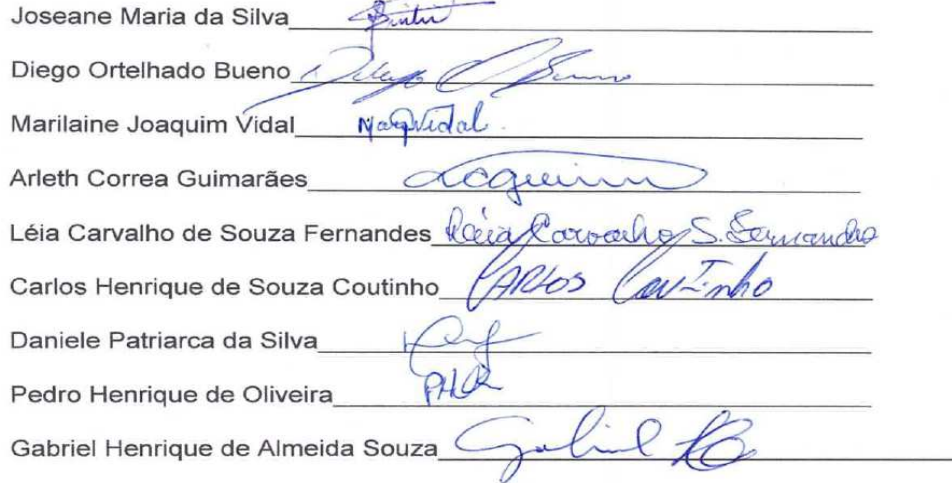 Joseane Maria da Silva
Diego Ortelhado Bueno Diego O Bueno
Marilaine Joaquim Vidal Marqvidal.
Arleth Correa Guimarães
Léia Carvalho de Souza Fernandes Léia Carvalho S. Fernandes
Carlos Henrique de Souza Coutinho CARLOS Coutinho
Daniele Patriarca da Silva
Pedro Henrique de Oliveira
Gabriel Henrique de Almeida Souza Gabriel